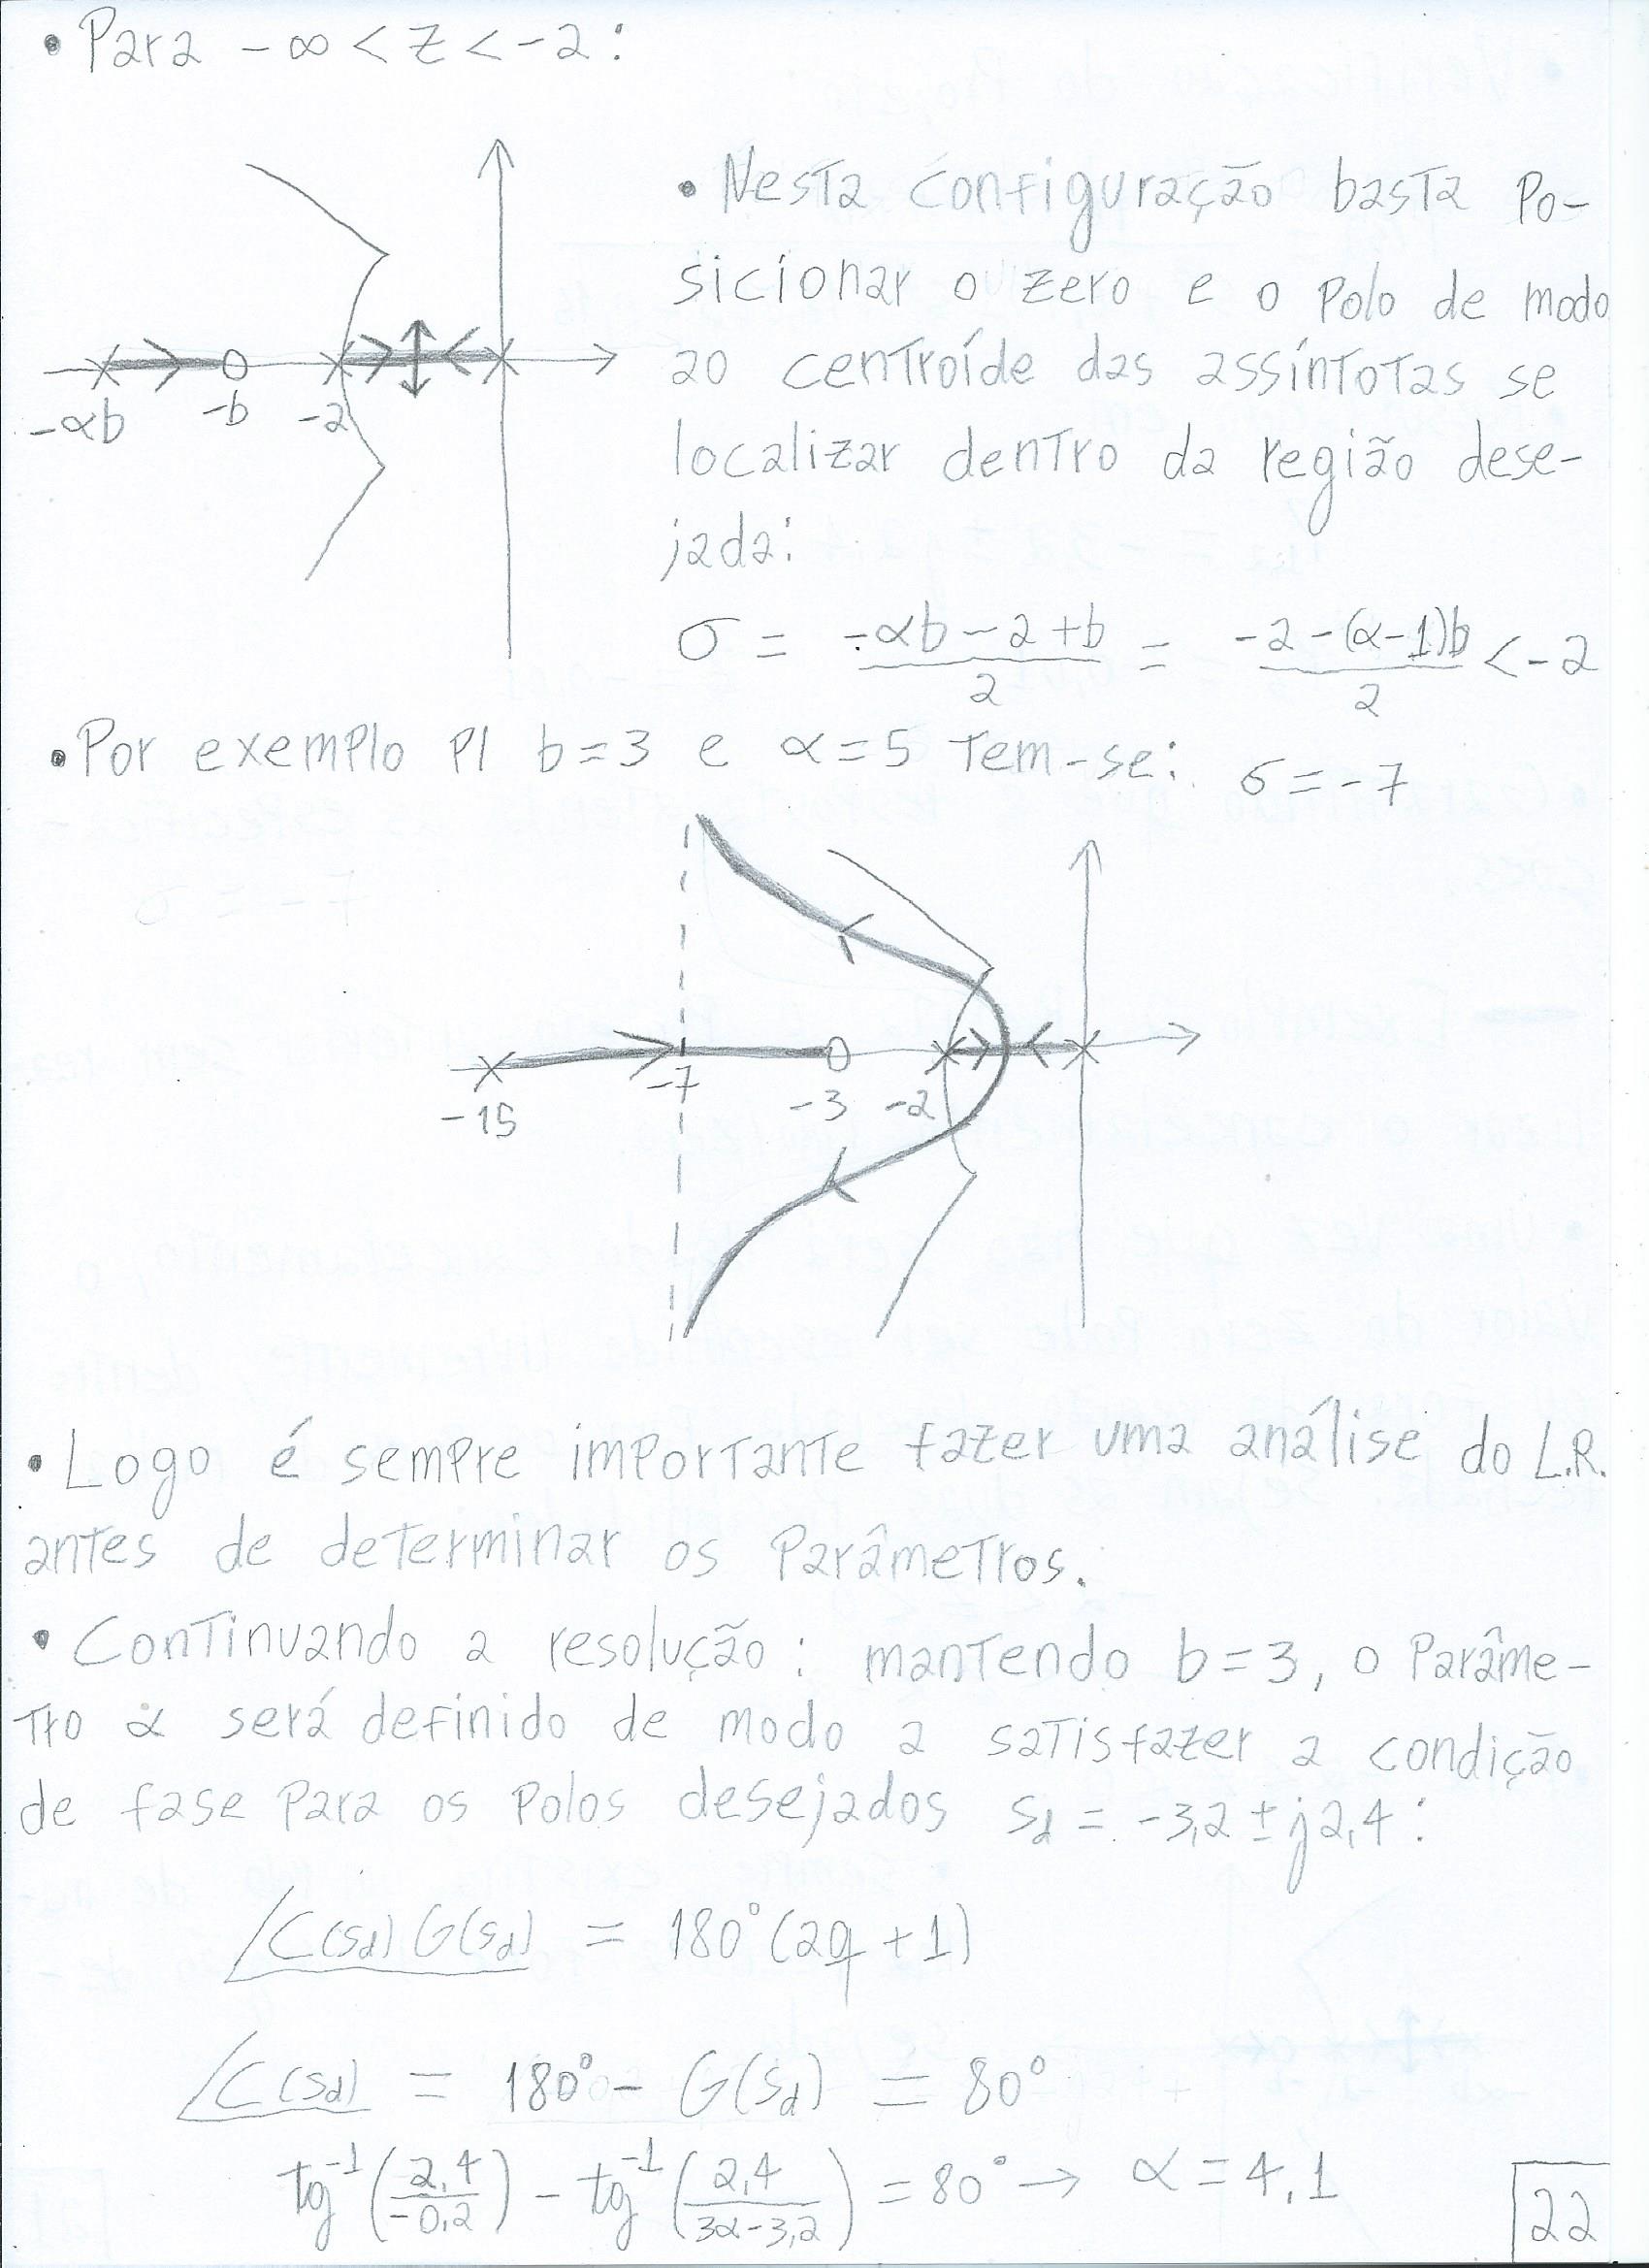 • Para -∞ < z < -2:
-αb -b -2
• Nesta configuração basta po-
sicionar o zero e o polo de modo
ao centroíde das assíntotas se
localizar dentro da região dese-
jada:
σ = (-αb - 2 + b)/2 = (-2 - (α-1)b)/2 < -2
• Por exemplo p/ b=3 e α=5 tem-se: σ=-7
-15 -7 -3 -2
• Logo é sempre importante fazer uma análise do L.R.
antes de determinar os parâmetros.
• Continuando a resolução: mantendo b=3, o parâme-
tro α será definido de modo a satisfazer a condição
de fase para os polos desejados s_d = -3,2 ± j2,4:
∠C(s_d)G(s_d) = 180°(2q+1)
∠C(s_d) = 180° - G(s_d) = 80°
tg⁻¹(2,4/-0,2) - tg⁻¹(2,4/(3α-3,2)) = 80° → α = 4,1
22